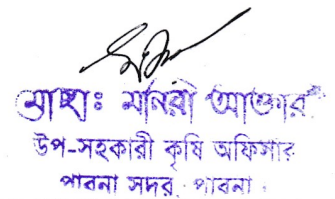 মোছাঃ মনিরা আক্তার
উপ-সহকারী কৃষি অফিসার
পাবনা সদর, পাবনা।